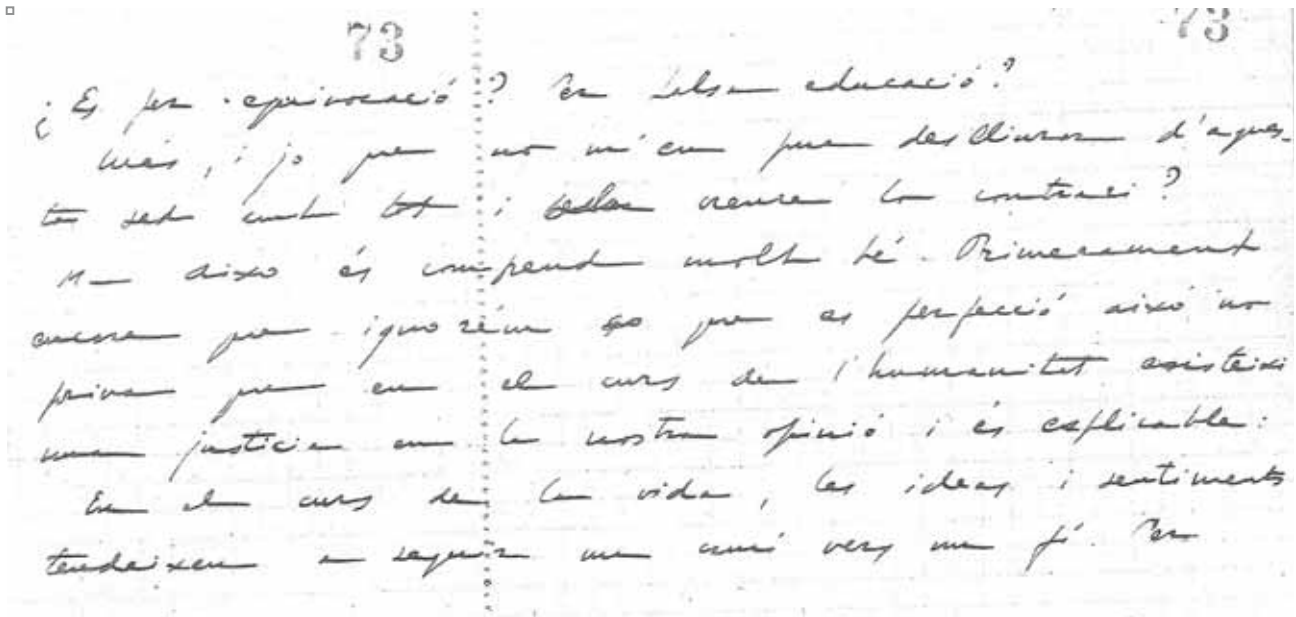 73 73
¿Es per equivocació? Per falsa educació?
Més, i jo que no m'en puc deslliurar d'aques-
ta sed amb tot i creure lo contrari?
M— Aixo és compend molt bé. Primerament
encara que ignorém ço que es perfecció aixó no
priva que en el curs de l'humanitat existeixi
una justicia en la nostra opinió i és explicable:
En el curs de la vida, les ideas i sentiments
tendeixen a seguir un camí vers un fí. Per